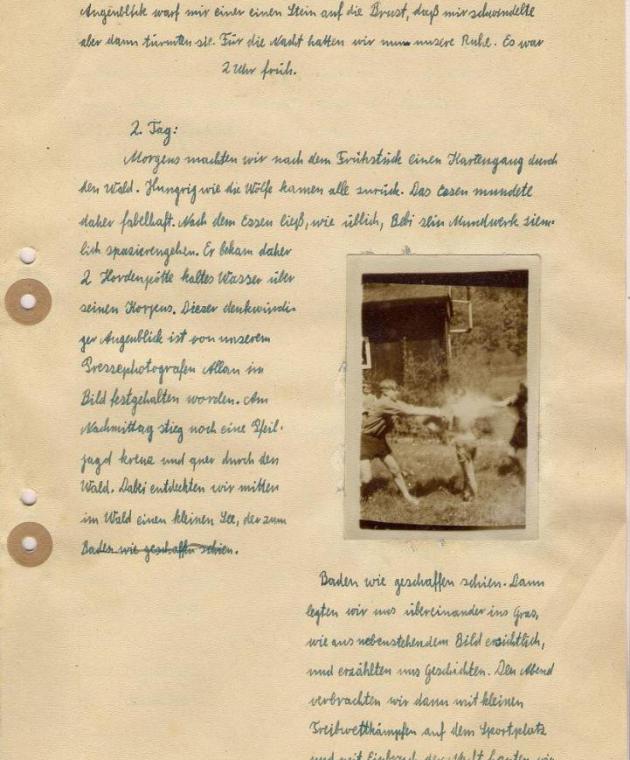 Augenblick warf mir einer einen Stein auf die Brust, daß mir schwindelte
aber dann türmten sie. Für die Nacht hatten wir nun unsere Ruhe. Es war
2 Uhr früh.
2. Tag:
Morgens machten wir nach dem Frühstück einen Kartengang durch
den Wald. Hungrig wie die Wölfe kamen alle zurück. Das Essen mundete
daher fabelhaft. Nach dem Essen ließ, wie üblich, Bebi sein Mundwerk ziem-
lich spazierengehen. Er bekam daher
2 Hordenpötte kaltes Wasser über
seinen Korpus. Dieser denkwürdi-
ger Augenblick ist von unserem
Pressephotografen Allan im
Bild festgehalten worden. Am
Nachmittag stieg noch eine Pfeil-
jagd kreuz und quer durch den
Wald. Dabei entdeckten wir mitten
im Wald einen kleinen See, der zum
Baden wie geschaffen schien.
Baden wie geschaffen schien. Dann
legten wir uns übereinander ins Gras,
wie aus nebenstehendem Bild ersichtlich,
und erzählten uns Geschichten. Den Abend
verbrachten wir dann mit kleinen
Treibwettkämpfen auf dem Sportplatz
und mit Einbruch der